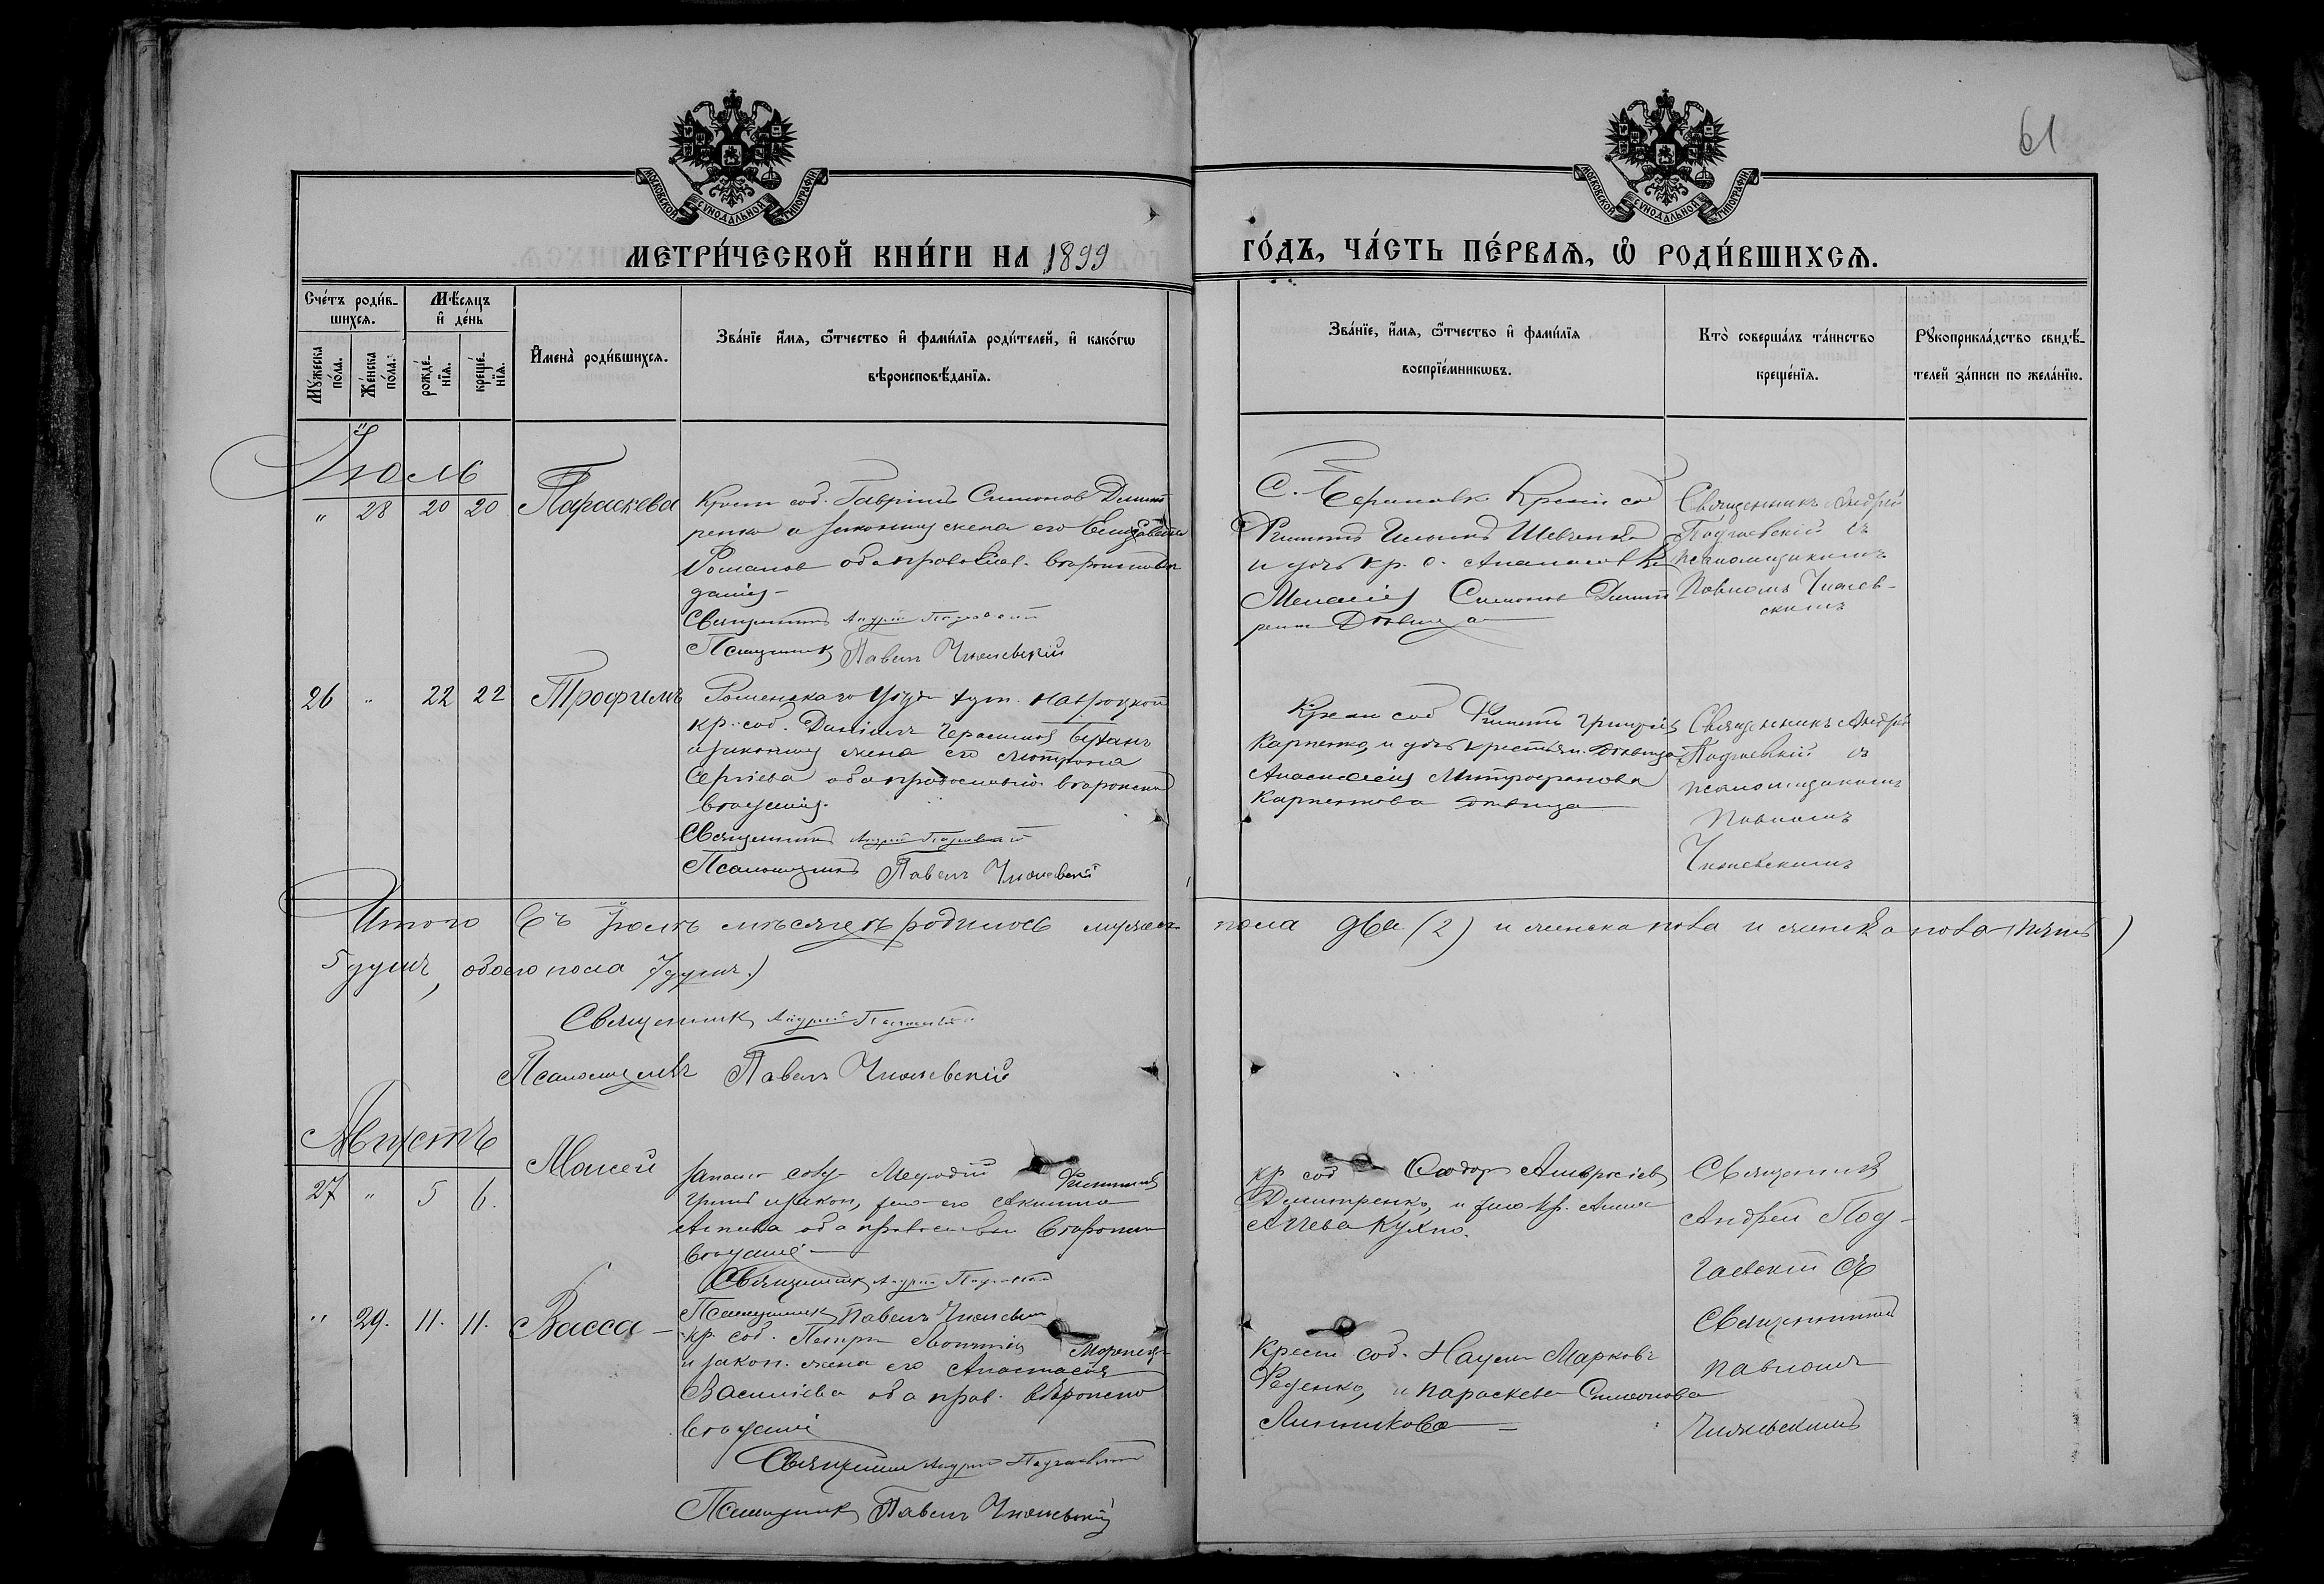 61
МОСКОВСКОЙ СѴНОДАЛЬНОЙ ТИПОГРАФІИ
МОСКОВСКОЙ СѴНОДАЛЬНОЙ ТИПОГРАФІИ
МЕТРИ́ЧЕСКОЙ КНИ́ГИ НА 1899
ГО́ДЪ, ЧА́СТЬ ПЕ́РВАѦ, Ѡ҆ РОДИ́ВШИХСѦ.
Сче́тъ роди́в-
шихсѧ.
Мѣ́сѧцъ
и҆ де́нь
Мꙋ́жеска
по́ла.
Же́нска
по́ла.
рожде́-
нїѧ.
креще́-
нїѧ.
И҆мена̀ роди́вшихсѧ.
Зва́нїе и҆́мѧ, ѻ҆́тчество и҆ фами́лїѧ роди́телей, и҆ како́гѡ
вѣроисповѣ́данїѧ.
Зва́нїе, и҆́мѧ, ѻ҆́тчество и҆ фами́лїѧ
воспрїе́мникѡвъ.
Кто̀ соверша́лъ та́инство
креще́нїѧ.
Рꙋкоприкла́дство свидѣ́-
телей за́писи по жела́нїю.
Іюль
" 28 20 20 Параскева
Крест соб. Гавріилъ Симонов Димит
ренко и законная жена его Елизавета
Романова оба православ. вѣроисповѣ
данія-
Священникъ Андрей Подгаевскій
Псаломщик Павелъ Чижевскій
Крест соб
Филиппъ Ильинъ Шевченко
и дочь кр. с.
Симонова Димит
ренко Дѣвица
Священникъ Андрей
Подгаевскій съ
псаломщикомъ
Павломъ Чижев-
скимъ
26 " 22 22 Трофимъ
Роменскаго Уѣзда хут.
кр. соб. Даніилъ Герасимов
и законная жена его Мотрона
Сергіева оба православной вѣроиспо
вѣданія.
Священникъ Андрей Подгаевскій
Псаломщикъ Павелъ Чижевскій
Крест соб Филиппъ Григорьев
Карпенко, и дочь крестьян. дѣвица
Анастасія Митрофанова
Карпенкова дѣвица
Священникъ Андрей
Подгаевскій съ
псаломщикомъ
Павломъ
Чижевскимъ
Итого Въ Іюлѣ мѣсяцѣ родилось мужеск
пола два (2) и женска пола и женска пола (пять)
5 душъ, обоего пола 7 душъ)
Священник Андрей Подгаевскій
Псаломщикъ Павелъ Чижевскій
Августъ
27 " 5 6. Моисей
Меѳодій Филиппов
и закон, жена его Акилина
оба православн вѣроиспо
вѣданія
Священник Андрей Подгаевскій
Псаломщик Павелъ Чижевскій
кр соб Сидор Амвросіев
Димитренко, и жена кр. Анна
Кухно.
Священникъ
Андрей Под-
гаевскій съ
" 29. 11. 11. Васса -
кр. соб. Петръ Леонтіев
и закон. жена его Анастасія
Василіева оба прав. вѣроиспо
вѣданія
Священник Андрей Подгаевскій
Псаломщик Павелъ Чижевскій
Крест соб. Наум Марковъ
Феденко, и Параскева Симонова
Линникова
Священникъ
Павломъ
Чижевскимъ